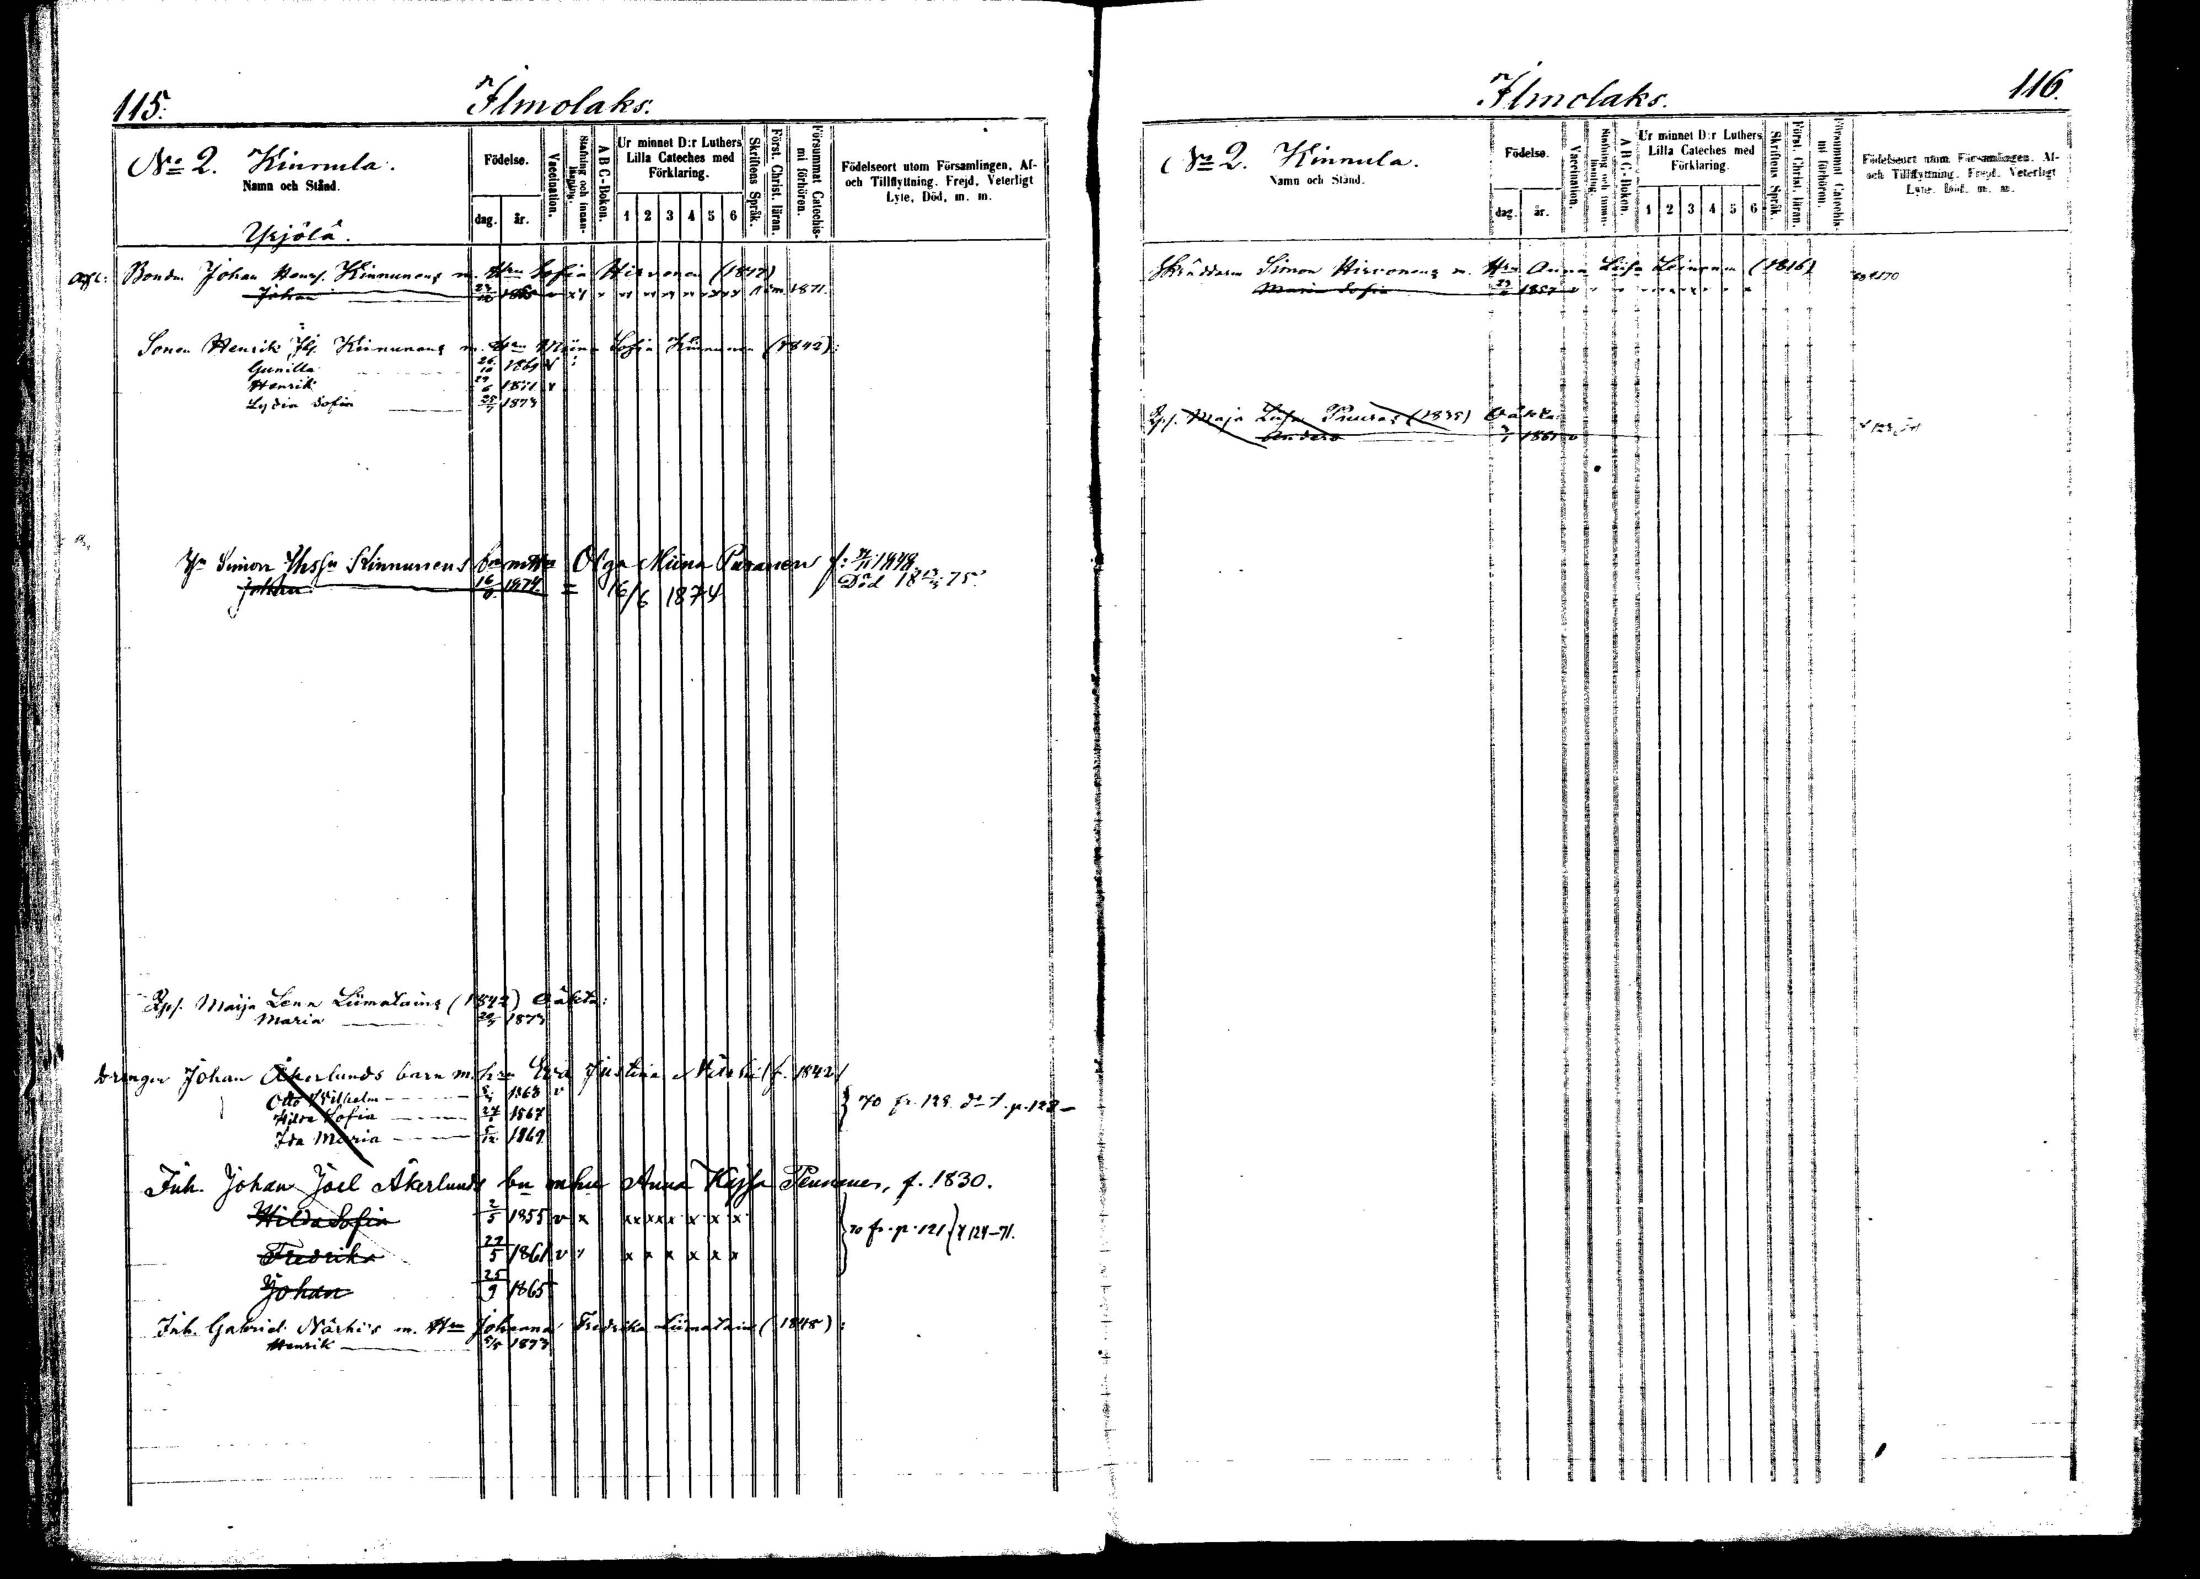 115.
Ilmolaks.
No 2. Kinnula.
Namn och Stånd.
Födelse.
dag.
år.
Vaccination.
Stafning och innan-läsning.
A B C-Boken.
Ur minnet D:r Luthers Lilla Cateches med Förklaring.
1 2 3 4 5 6
Skriftens Språk.
Först. Christ. läran.
Försummat Catechis-mi förhören.
Födelseort utom Församlingen, Af-
och Tillflyttning. Frejd, Veterligt
Lyte, Död, m. m.
Yrjölä.
Bondn Johan Henrs. Kinnunens m. Hru Sofia Hirvonen (1812)
Johan 1871.
Sonen Henrik Kinnunens m. hru Miina Sofia Kinnunen (1842):
Gunilla 1869 v
Henrik 1871 v
Lydia Sofia 1873
Simon Kinnunens bn m Hu Olga Miina Puranen f: 1848
Johan 16/6 1874. = 16/6 1874 Död 75.
Maija Lena Liimatains (1842) oäkta:
Maria 1873
Drängen Johan Åkerlunds barn m. hru Eva Justina (f. 1842)
Otto Wilhelm 1863 v
Hilda Sofia 1867 70 fr. 128. p. 128
Ida Maria 5/12 1869
Inh. Johan Joel Åkerlunds bn m hu Anna Kajsa Pennanen, f. 1830.
Hilda Sofia 2/5 1855 v x x x x x x x x
70 fr. p. 121 124-71.
Fredrika 27/5 1861 v x x x x x x
Johan 25/9 1865
Inh. Gabriel Närhi's m. Hru Johanna Fredrika Liimatain (1848):
Henrik 1873
116.
Ilmolaks.
No 2. Kinnula.
Namn och Stånd.
Födelse.
dag.
år.
Vaccination.
Stafning och innan-läsning.
A B C-Boken.
Ur minnet D:r Luthers
Lilla Cateches med
Förklaring.
1 2 3 4 5 6
Skriftens Språk.
Först. Christ. läran.
Försummat Catechis-mi förhören.
Födelseort utom Församlingen. Af-
och Tillflyttning. Frejd. Veterligt
Lyte. Död. m. m.
Skräddarn Simon Hirvonens m. Hru Anna Lisa Leinonen (1816)
Maria Sofia 1857 v
Maja Lisa Puuras (1835) Oäkta:
Anders 1861 v